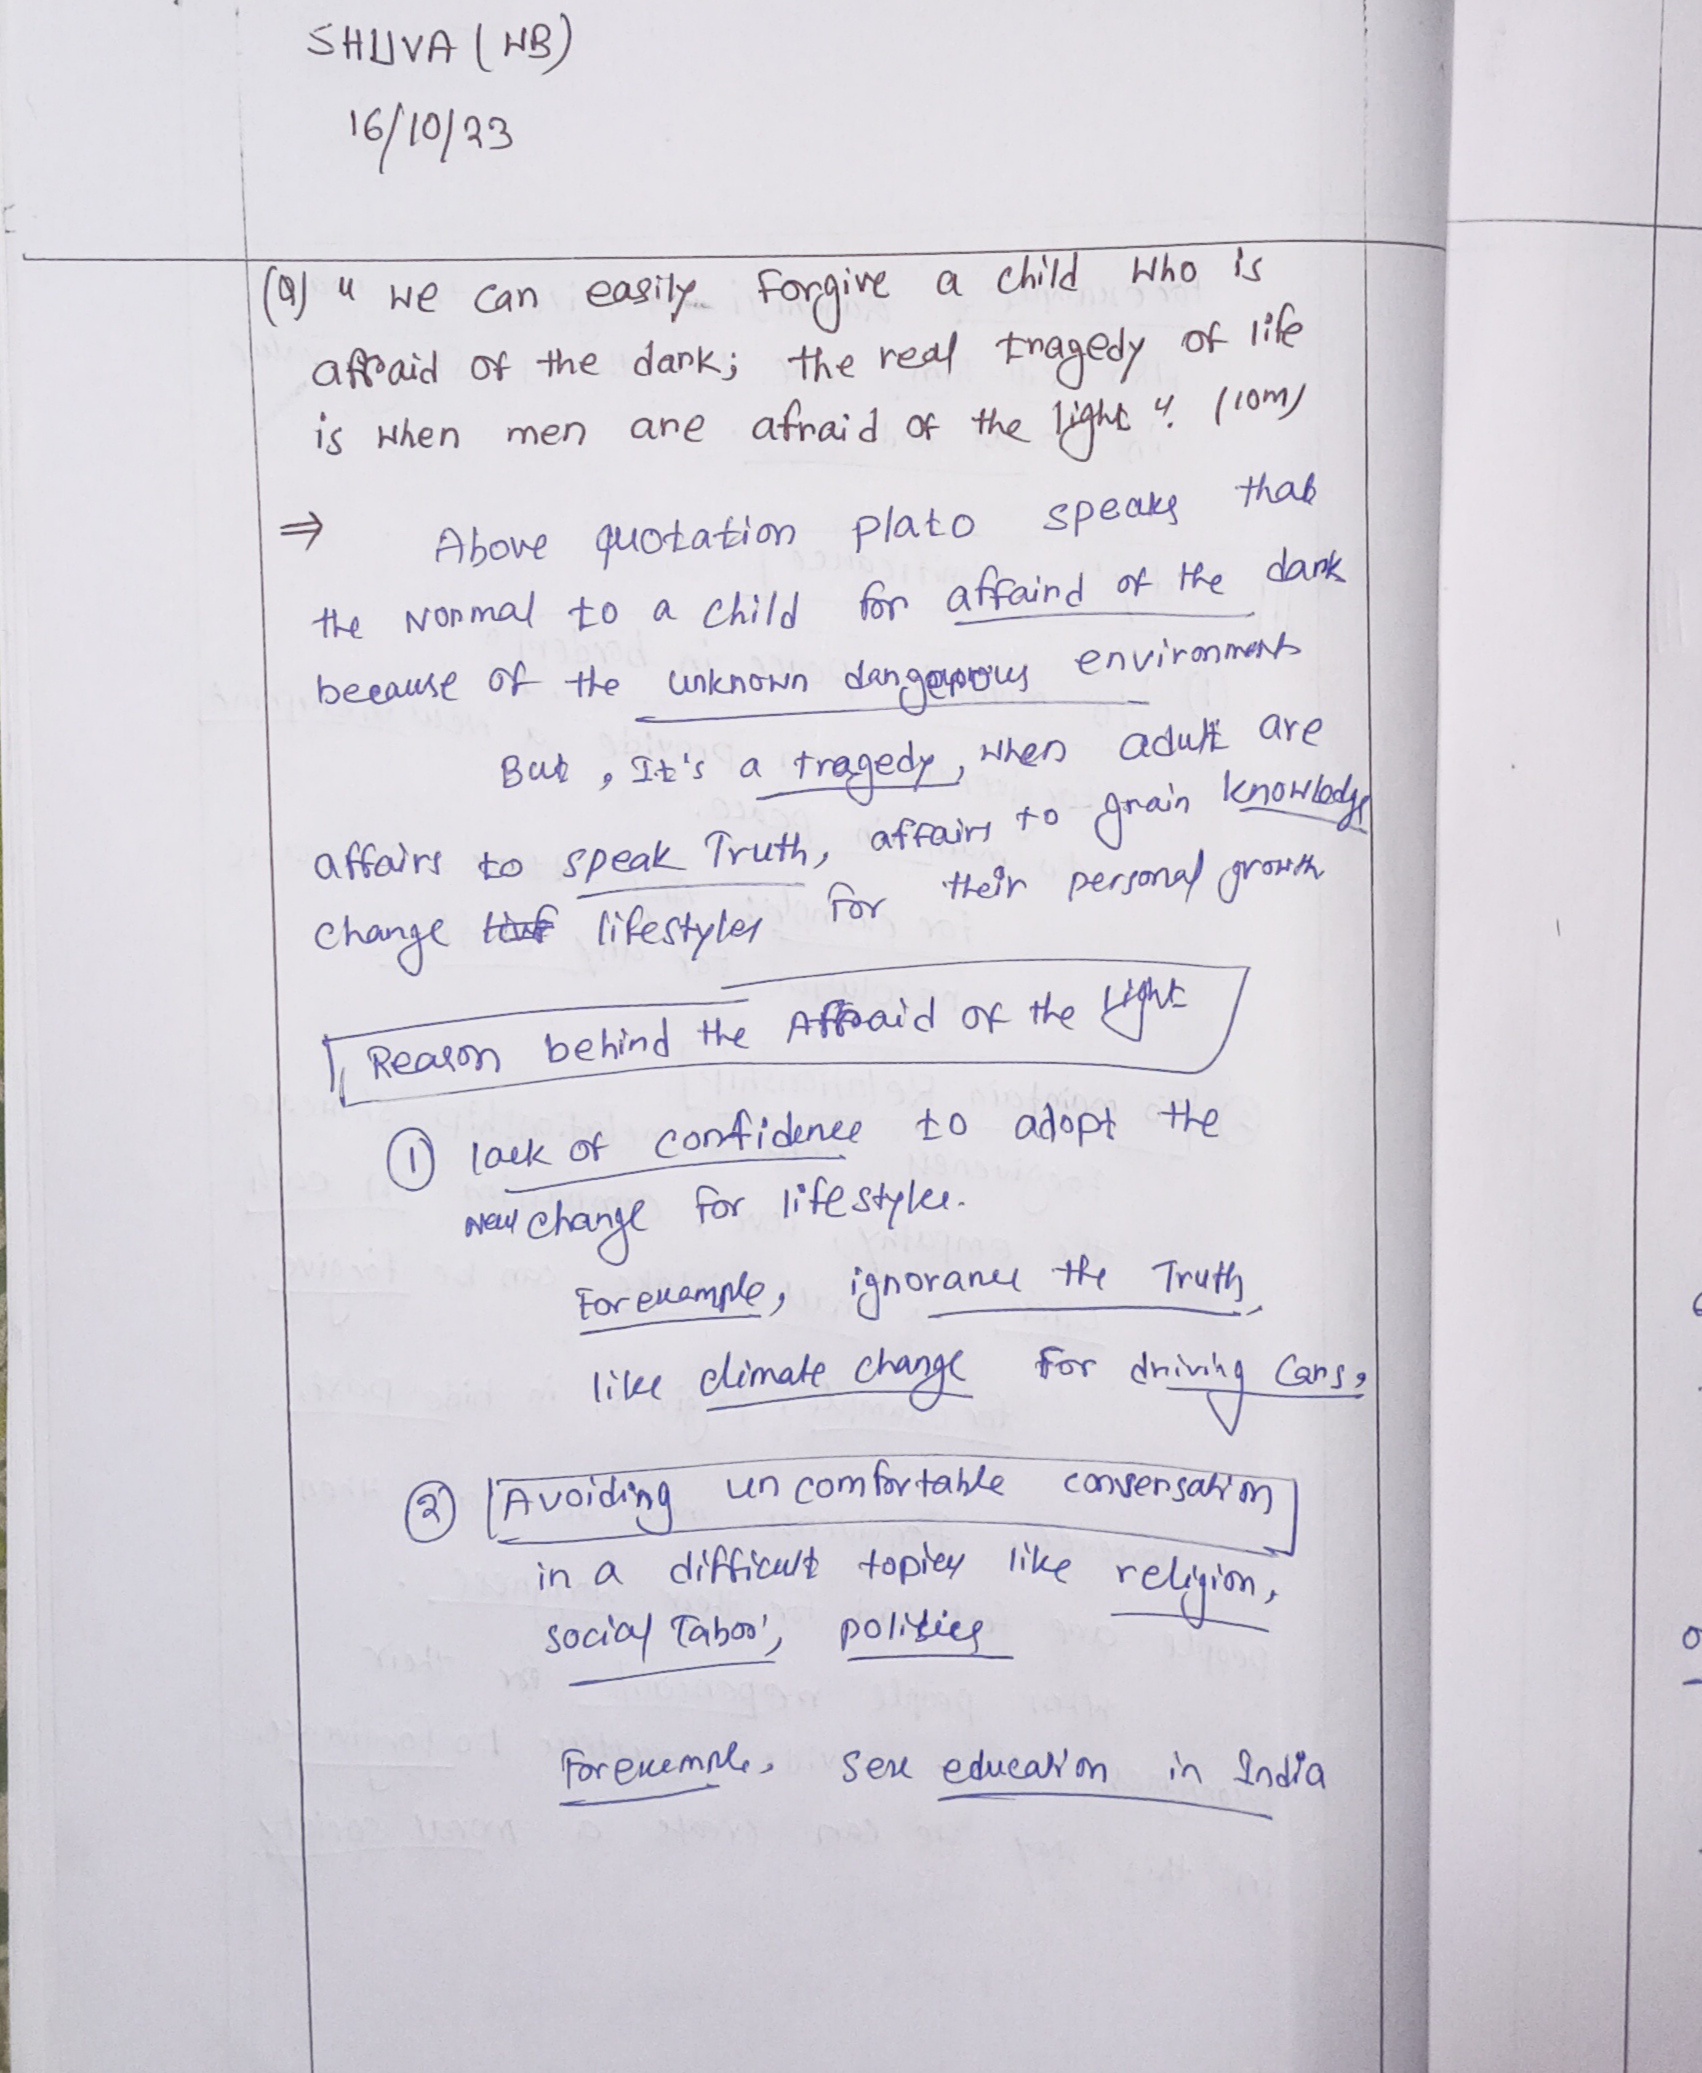 SHUVA (WB)
16/10/23
(Q) "We can easily forgive a child who is
affraid of the dark; the real tragedy of life
is when men are afraid of the light". (10m)
⇒ Above quotation plato speaks that
the Normal to a child for affaind of the dark
because of the unknown dangerous environments
But, It's a tragedy, when adult are
affairs to speak Truth, affairs to grain knowledge
change lifestyles for their personal growth
Reason behind the Affraid of the Light
① lack of confidence to adopt the
new change for lifestyles.
For example, ignorance the Truth,
like climate change for driving cars,
② Avoiding uncomfortable conversation
in a difficult topics like religion,
social Taboo', politics
For example, sex education in India